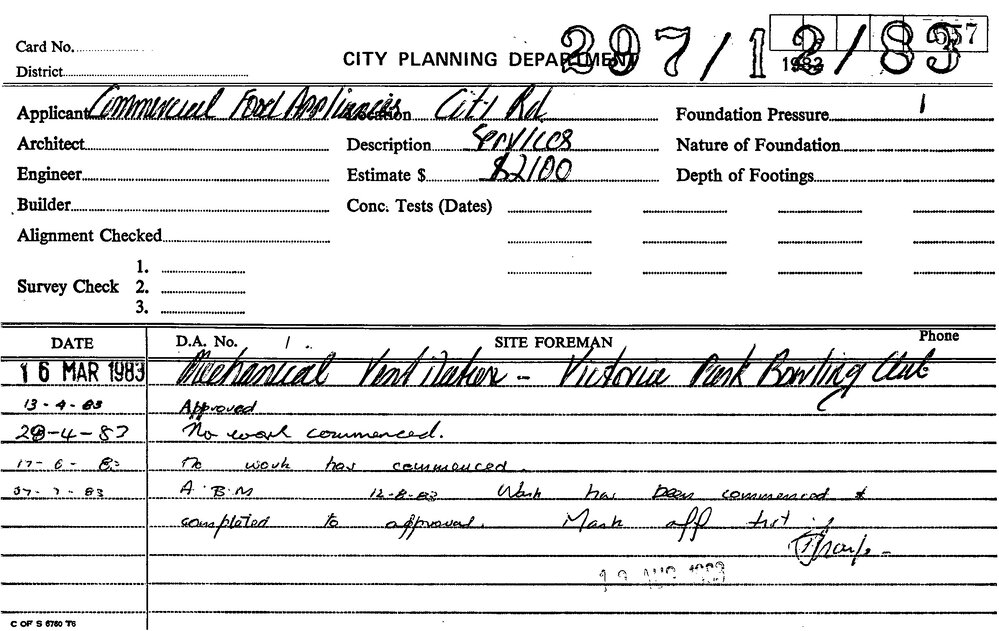 Card No.
District
CITY PLANNING DEPARTMENT
297/12/83
1983
Applicant Commercial Food Appliances Location City Rd. Foundation Pressure
Architect Description Services Nature of Foundation
Engineer Estimate $ $2100 Depth of Footings
Builder Conc. Tests (Dates)
Alignment Checked
1.
Survey Check 2.
3.
DATE D.A. No. / SITE FOREMAN Phone
16 MAR 1983 Mechanical Ventilation - Victoria Park Bowling Club
13-4-83 Approved
28-4-83 No work commenced.
17-6-83 No work has commenced.
A.B.M 12-8-83 Work has been commenced &
completed to approved. Mark off list
AUG 1983
C OF S 6760 T6